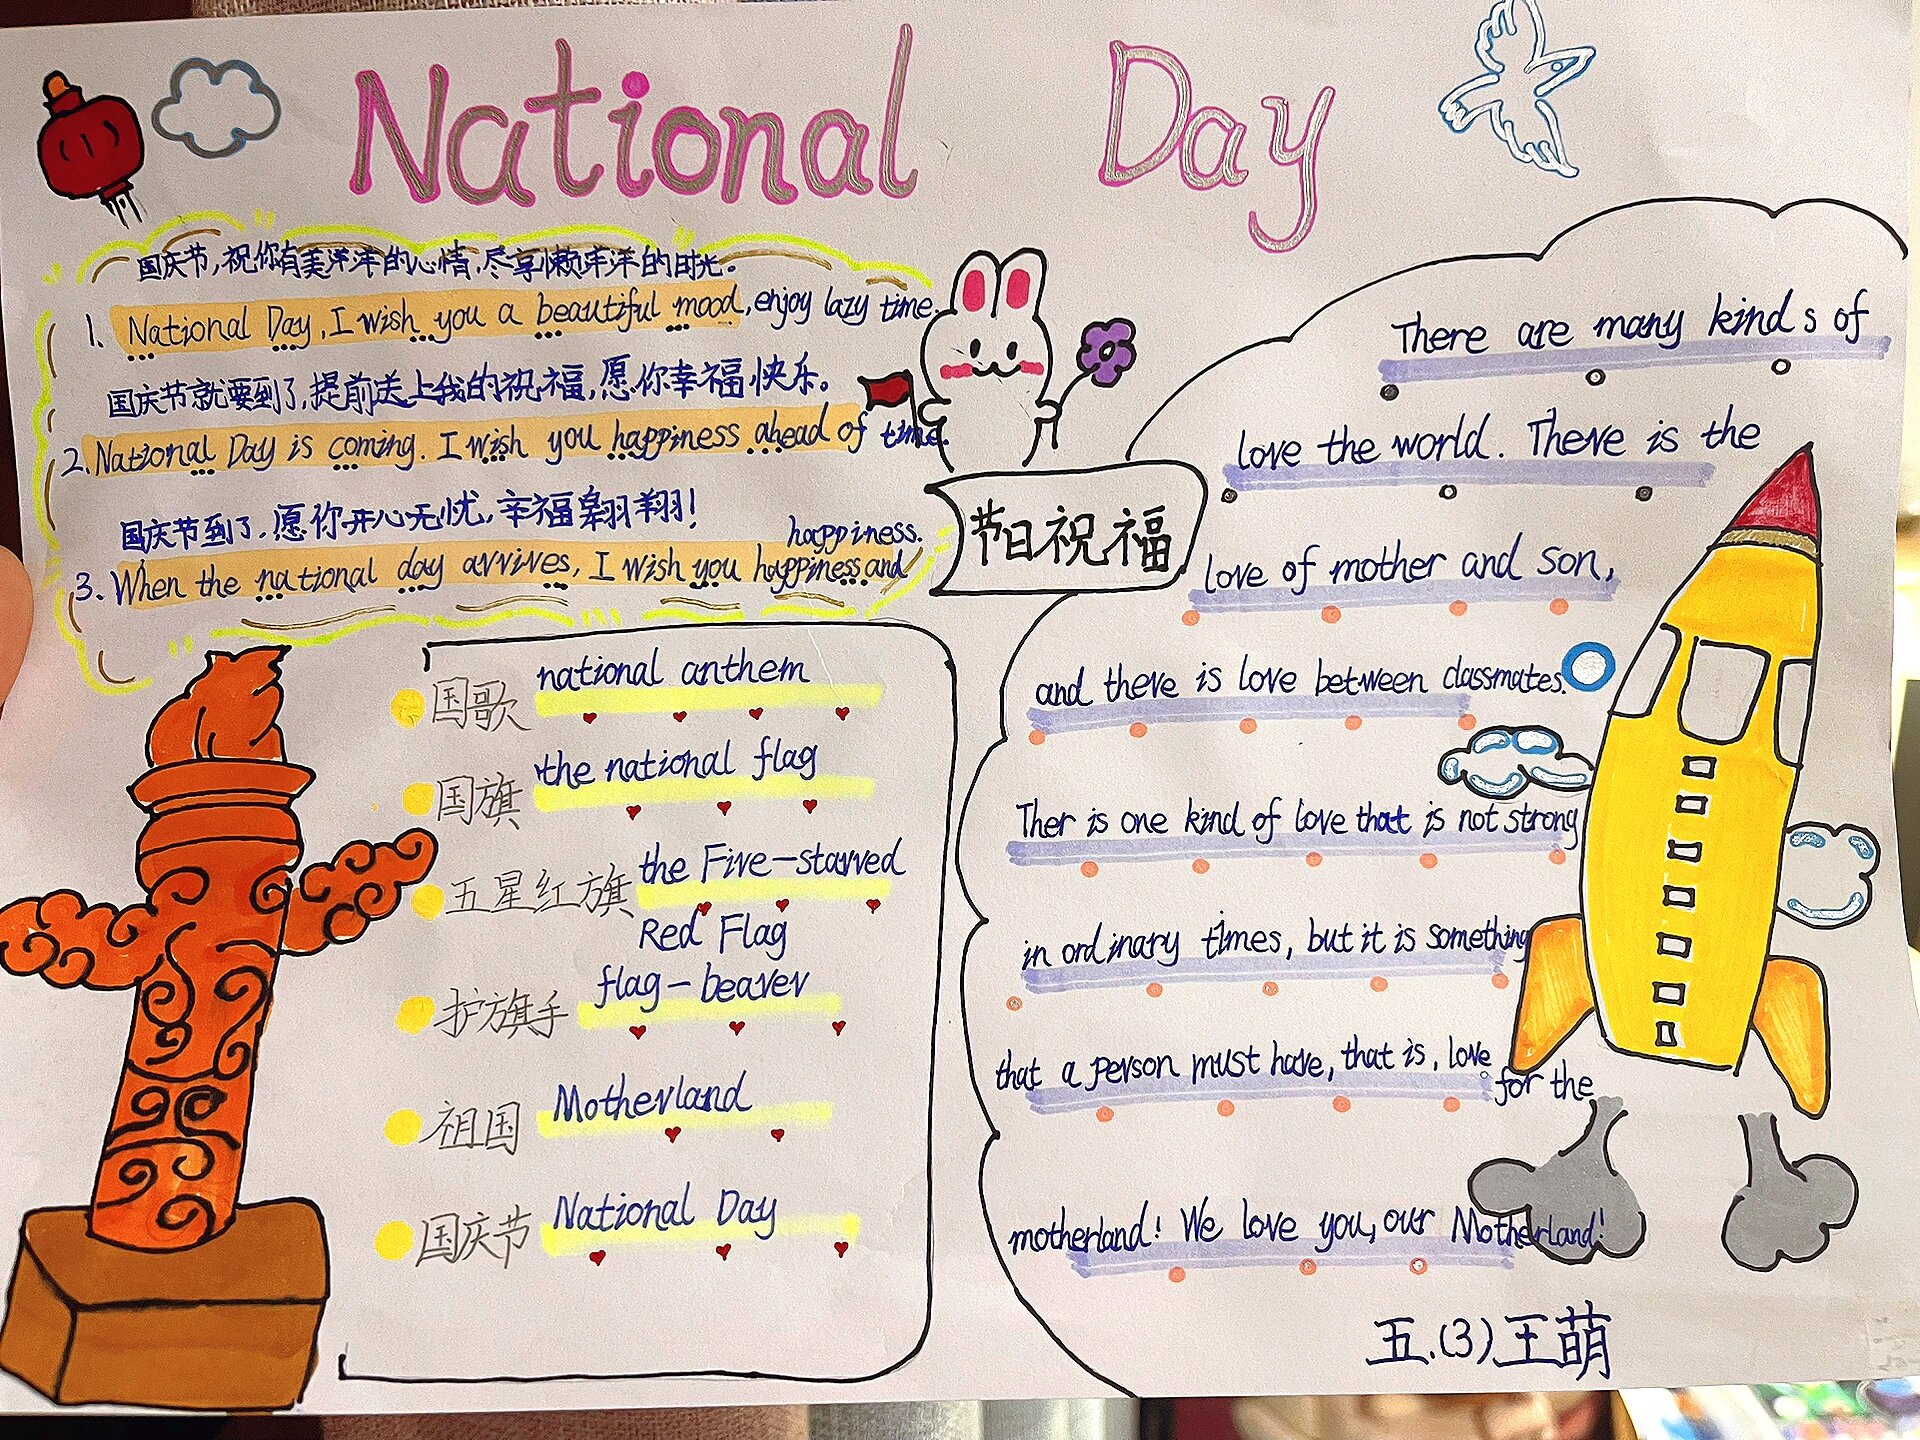 National Day
国庆节,祝你有美洋洋的心情.尽享懒洋洋的时光。
1. National Day, I wish you a beautiful mood, enjoy lazy time.
国庆节就要到了,提前送上我的祝福,愿你幸福快乐。
2. National Day is coming. I wish you happiness ahead of time.
国庆节到了,愿你开心无忧,幸福翱翔!
3. When the national day arrives, I wish you happiness and
happiness.
节日祝福
国歌 national anthem
国旗 the national flag
五星红旗 the Five-starred
Red Flag
护旗手 flag-bearer
祖国 Motherland
国庆节 National Day
There are many kinds of
love the world. There is the
love of mother and son,
and there is love between classmates.
Ther is one kind of love that is not strong
in ordinary times, but it is something
that a person must have, that is, love for the
motherland! We love you, our Motherland!
五.(3)王萌